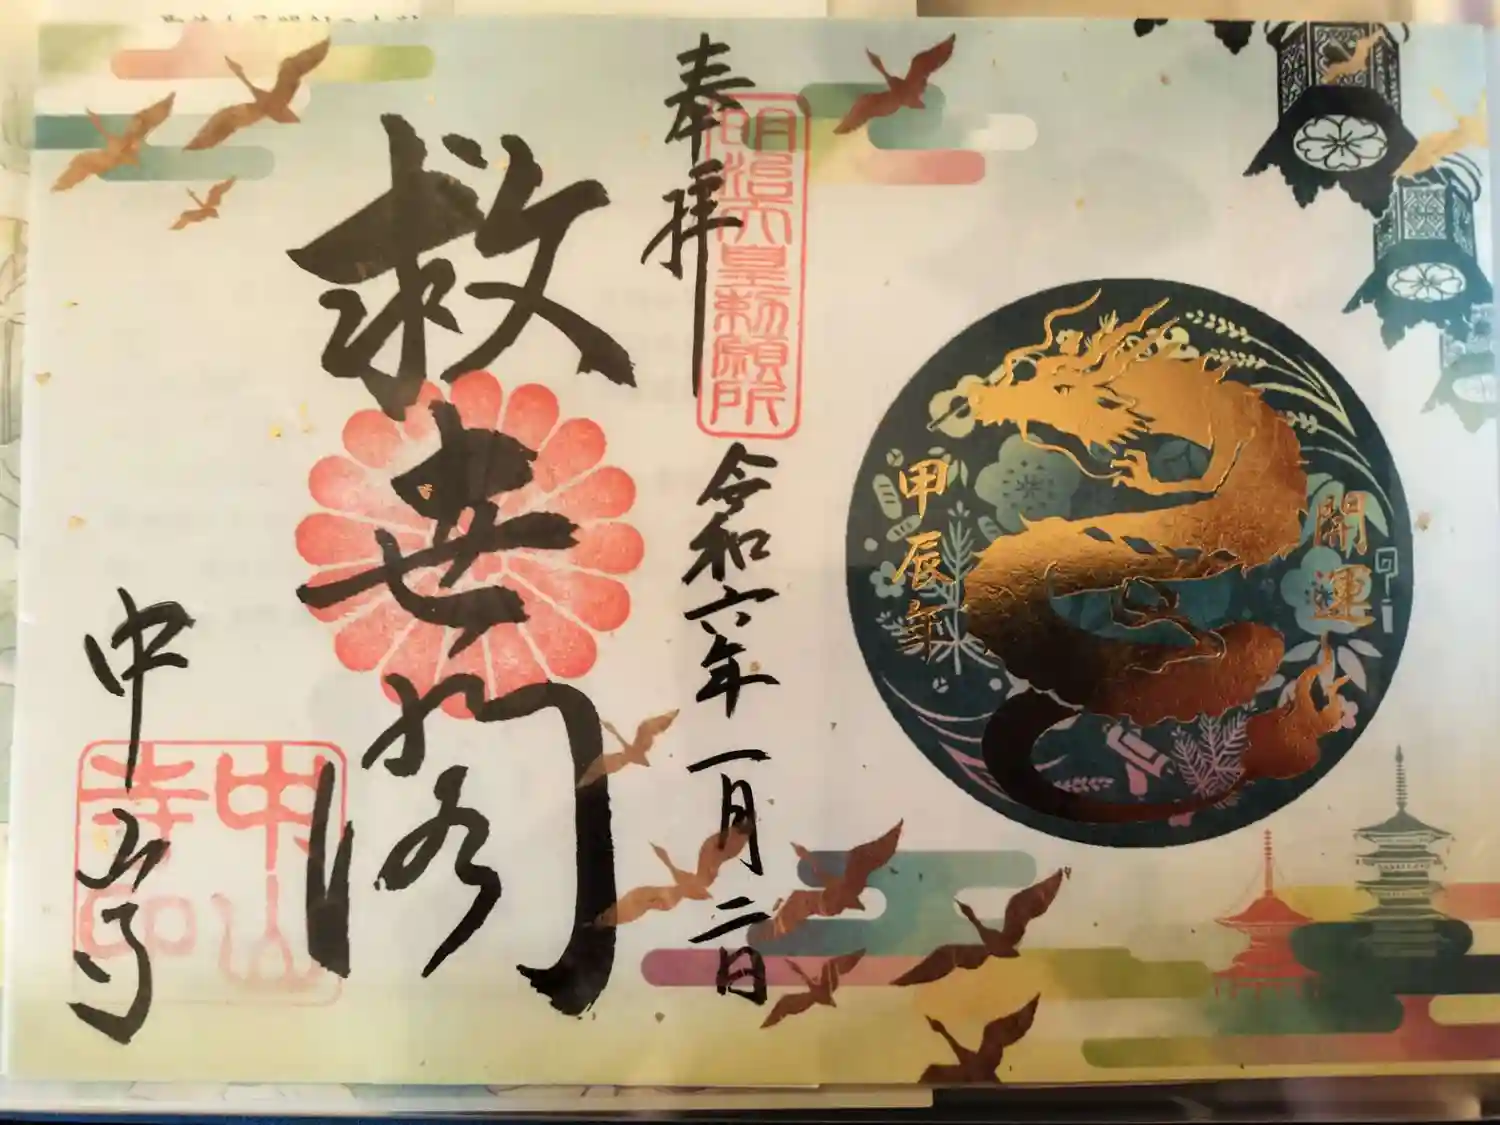 開運
甲辰年
奉拝
明治天皇勅願所
令和六年一月二日
救世閣
中山寺
中山寺印